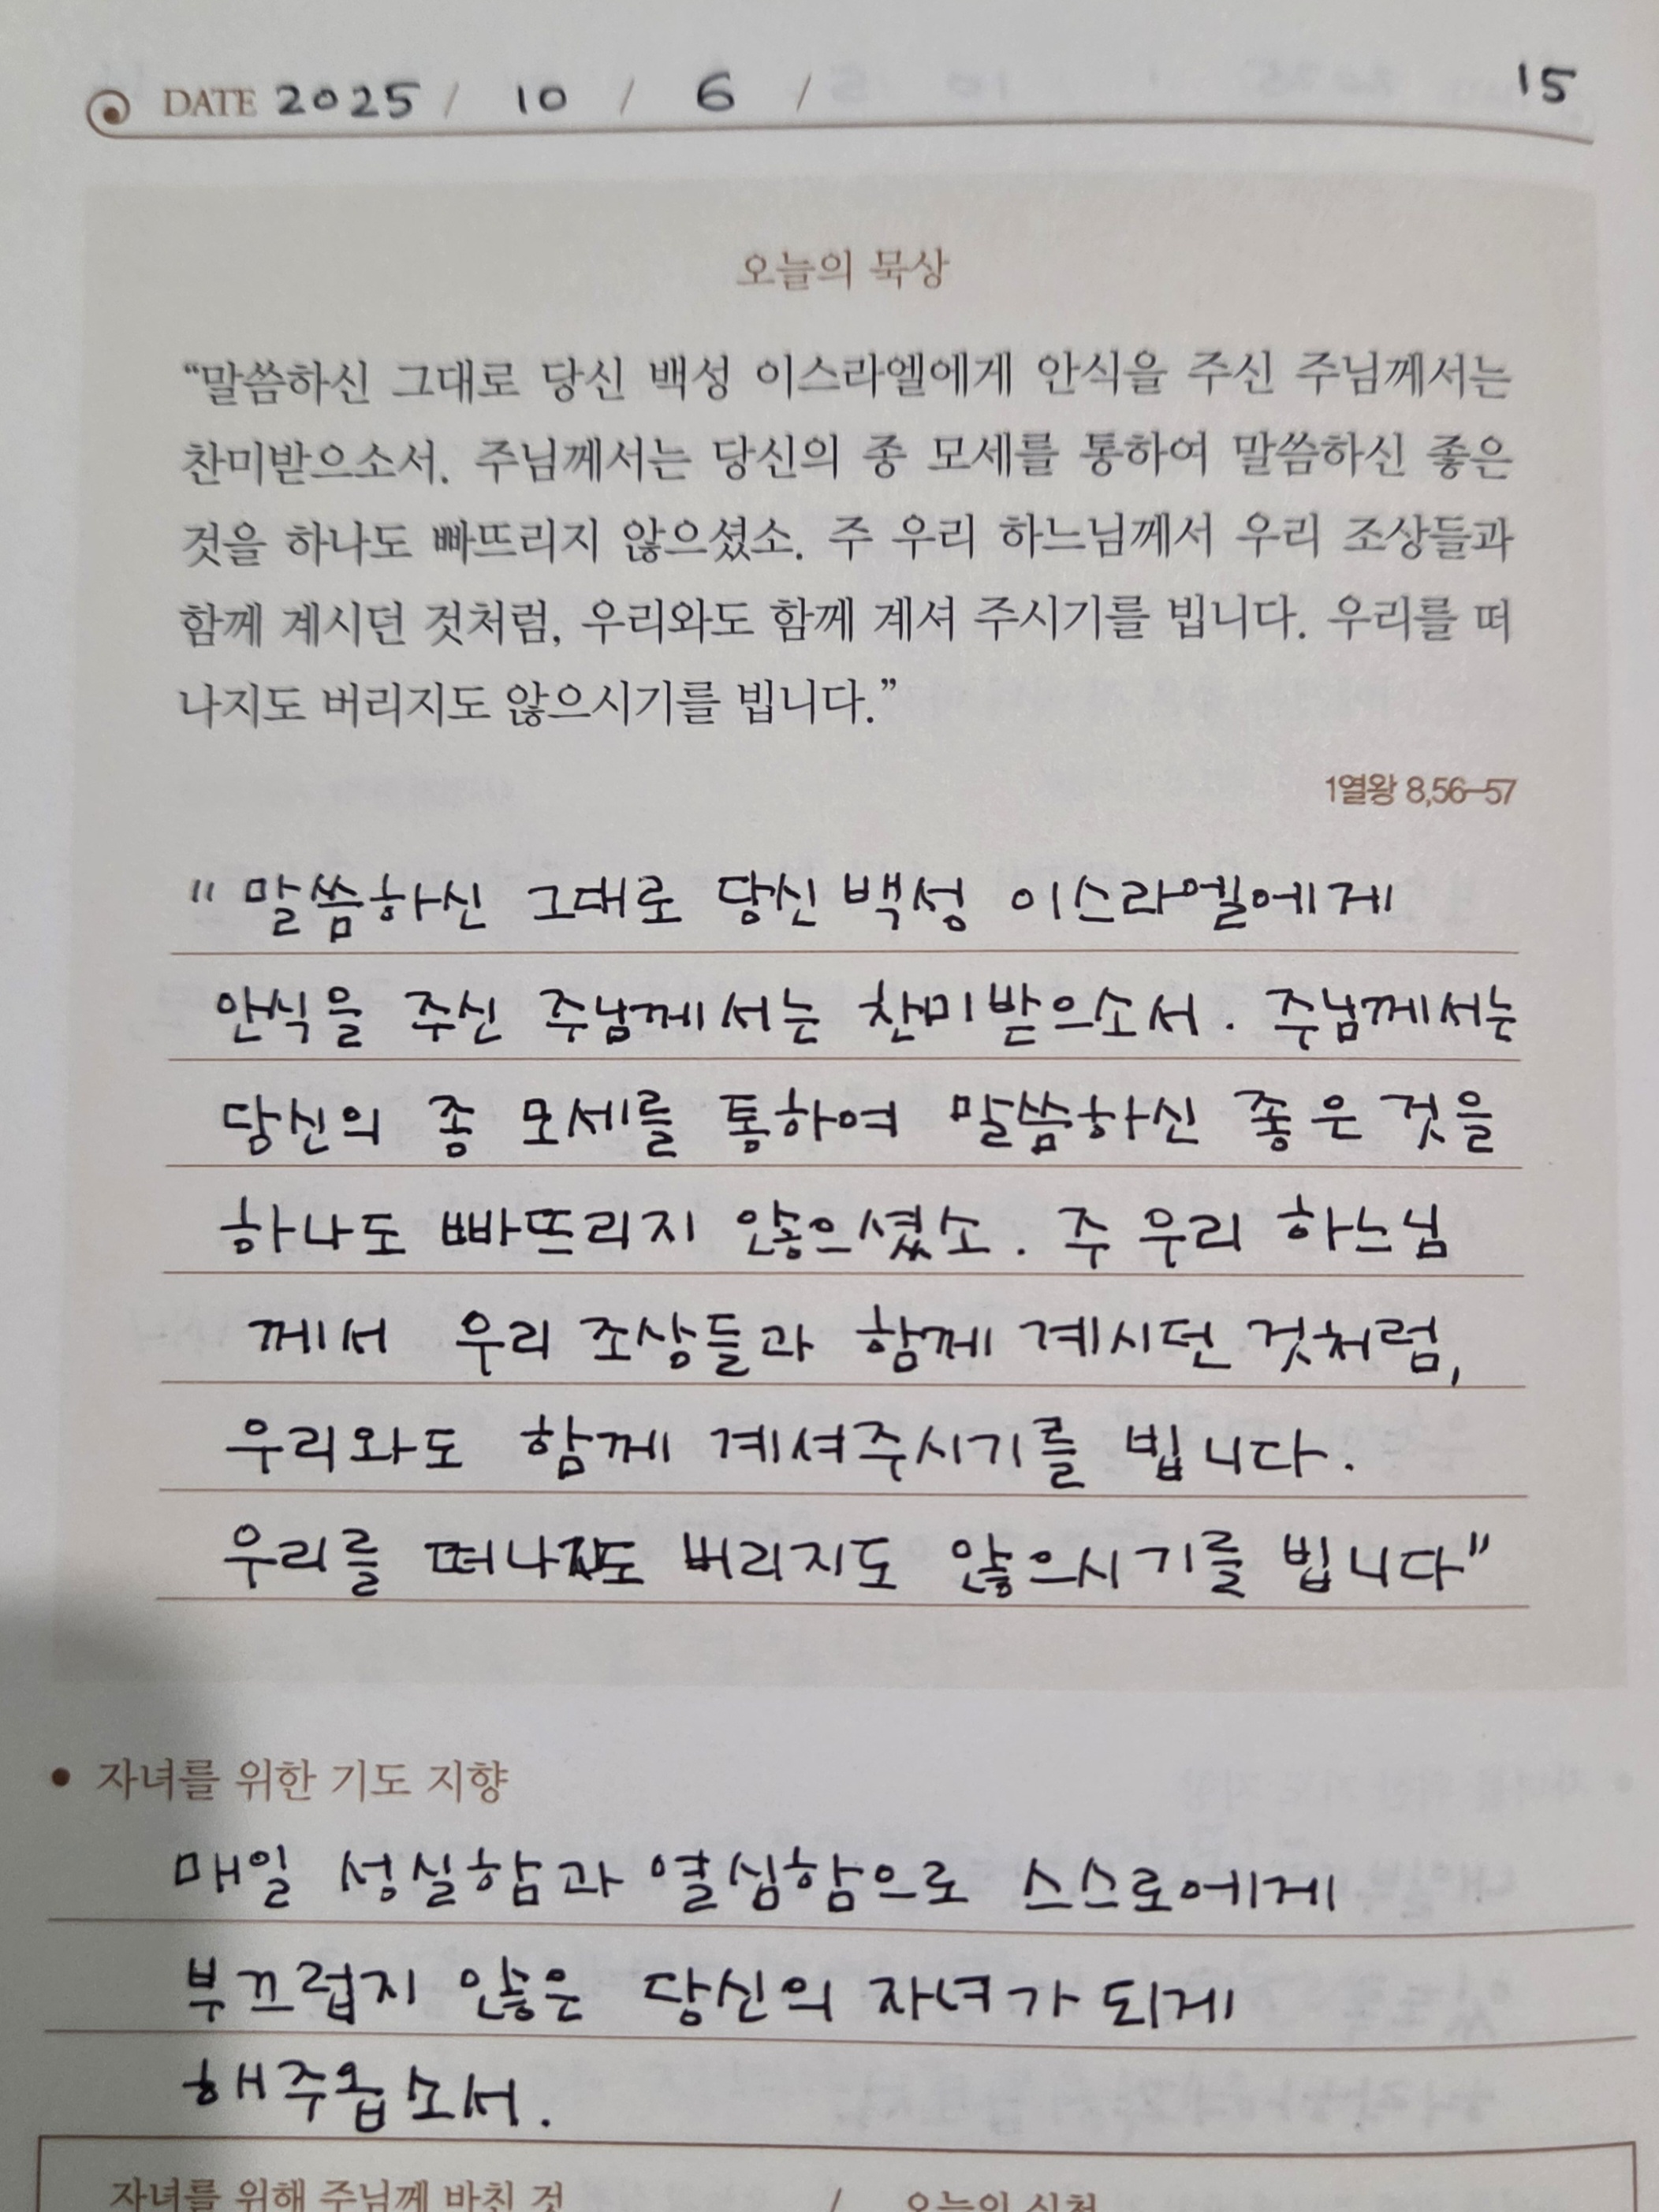 DATE 2025 / 10 / 6 / 15
오늘의 묵상
“말씀하신 그대로 당신 백성 이스라엘에게 안식을 주신 주님께서는
찬미받으소서. 주님께서는 당신의 종 모세를 통하여 말씀하신 좋은
것을 하나도 빠뜨리지 않으셨소. 주 우리 하느님께서 우리 조상들과
함께 계시던 것처럼, 우리와도 함께 계셔 주시기를 빕니다. 우리를 떠
나지도 버리지도 않으시기를 빕니다.”
1열왕 8,56–57
"말씀하신 그대로 당신 백성 이스라엘에게
안식을 주신 주님께서는 찬미받으소서. 주님께서는
당신의 종 모세를 통하여 말씀하신 좋은 것을
하나도 빠뜨리지 않으셨소. 주 우리 하느님
께서 우리 조상들과 함께 계시던 것처럼,
우리와도 함께 계셔주시기를 빕니다.
우리를 떠나지도 버리지도 않으시기를 빕니다"
• 자녀를 위한 기도 지향
매일 성실함과 열심함으로 스스로에게
부끄럽지 않은 당신의 자녀가 되게
해주옵소서.
자녀를 위해 주님께 바친 것 / 오늘의 실천